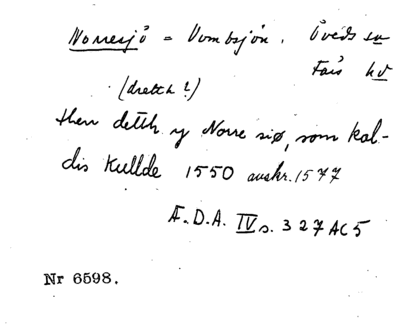 Norresjö = Vombsjön. Öveds sn
Färs hd
(dretth?)
then detth y Norre siø, som kal-
dis Kullde 1550 avskr. 1577
Æ.D.A. IV s. 327 AC5
Nr 6598.